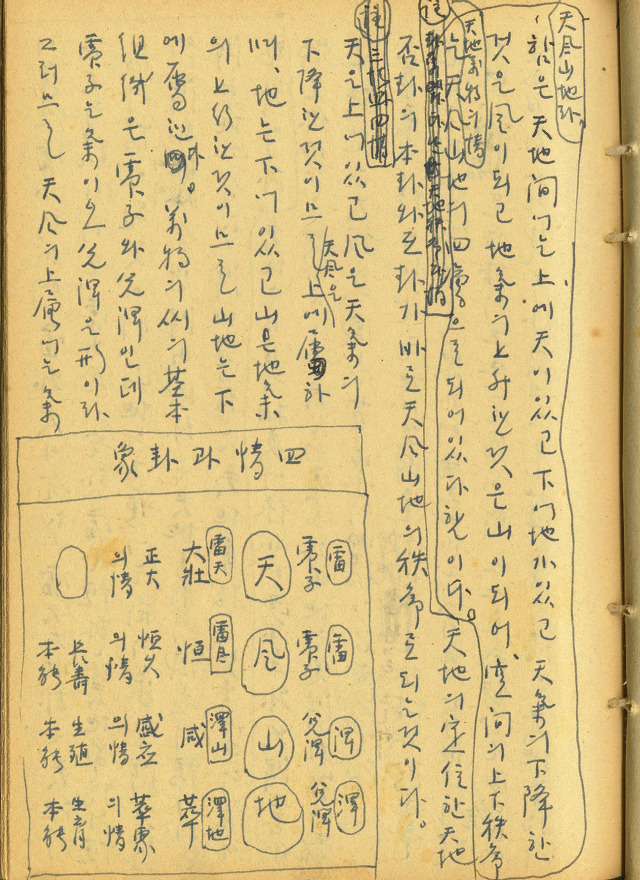 天風山地卦,
함은 天地間에는 上에 天이 있고 下에 地가 있고 天氣의 下降한
것은 風이 되고 地氣의 上升한 것은 山이 되어, 空間의 上下秩序
는 天風山地의 四象으로 되어 있다 함이다. 天地의 定位한 天地
天地萬物의 情
否卦의 本卦와 卦가 바로 天風山地의 秩序로 되는 것이다.
註 三
天은 上에 있고 風은 天氣의
下降한 것이므로 天風은 上에 屬하
며, 地는 下에 있고 山은 地氣
의 上升한 것이므로 山地는 下
에 屬한다. 萬物의 씨의 基本
組織은 震子와 兌澤인데
震子는 氣이오 兌澤은 形이라
그러므로 天風의 上屬에는 氣
四情과 卦象
雷 雷 澤 澤
震子 震子 兌澤 兌澤
天 風 山 地
雷天 雷風 澤山 澤地
大壯 恒 咸 萃
正大의情 恒久의情 感應의情 萃聚의情
長壽本能 生殖本能 生育本能